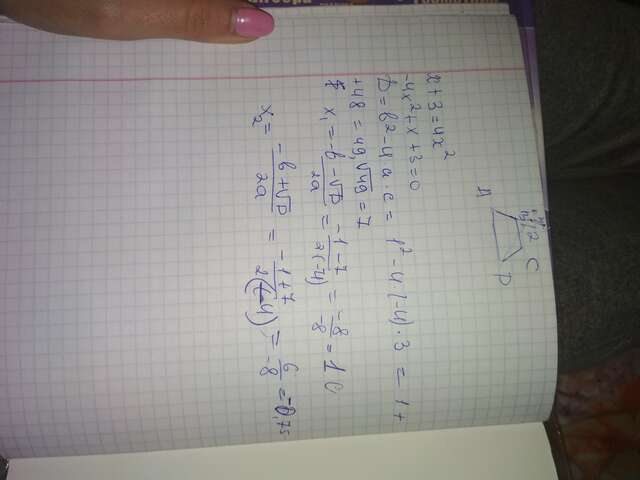 x + 3 = 4x²
-4x² + x + 3 = 0
D = b² - 4a·c = 1² - 4·(-4)·3 = 1 +
+48 = 49, √49 = 7
x₁ = (-b - √D)/2a = (-1 - 7)/2(-4) = -8/-8 = 1
x₂ = (-b + √D)/2a = (-1 + 7)/2(-4) = 6/-8 = -0,75
C